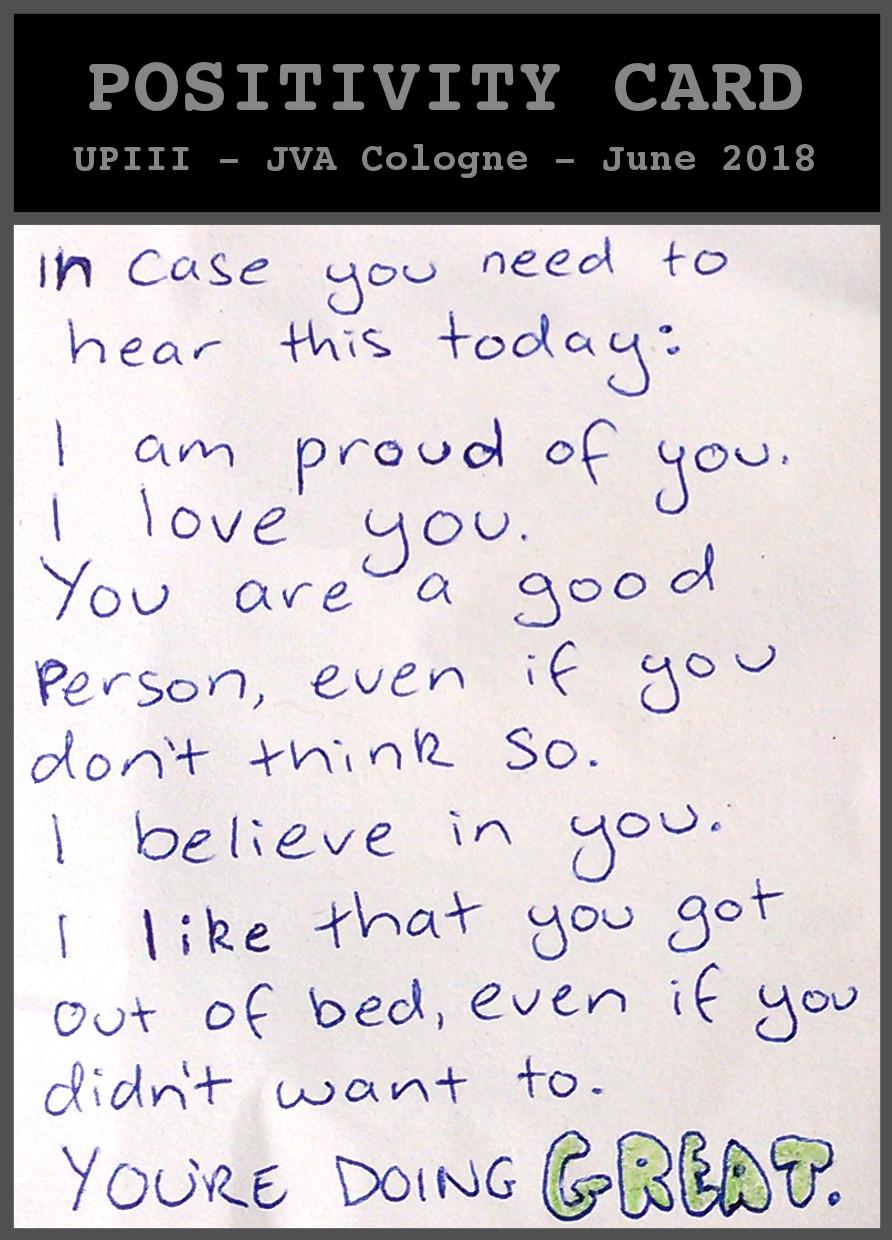 POSITIVITY CARD
UPIII - JVA Cologne - June 2018
in case you need to
hear this today:
I am proud of you.
I love you.
You are a good
Person, even if you
don't think so.
I believe in you.
I like that you got
out of bed, even if you
didn't want to.
YOU'RE DOING GREAT.